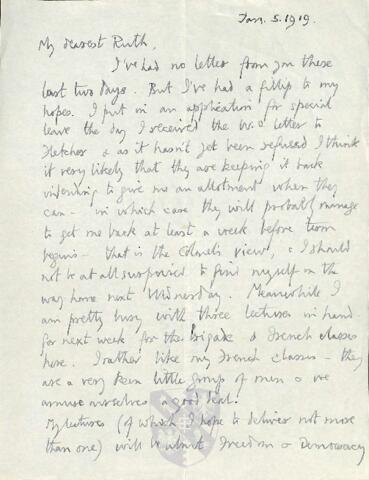 Jan. 5. 1919.
My dearest Ruth,
I've had no letter from you these
last two days. But I've had a fillip to my
hopes. I put in an application for special
leave the day I received the W.O letter to
Fletcher & as it hasn't yet been refused I think
it very likely that they are keeping it back
intending to give me an allotment when they
can - in which case they will probably manage
to get me back at least a week before term
begins - that is the Colonel's view, & I should
not be at all surprised to find myself on the
way home next Wednesday. Meanwhile I
am pretty busy with three lectures in hand
for next week for the brigade & French classes
here. I rather like my French classes - they
are a very keen little group of men & we
amuse ourselves a good deal.
My lectures (of which I hope to deliver not more
than one) will be about Freedom & Democracy